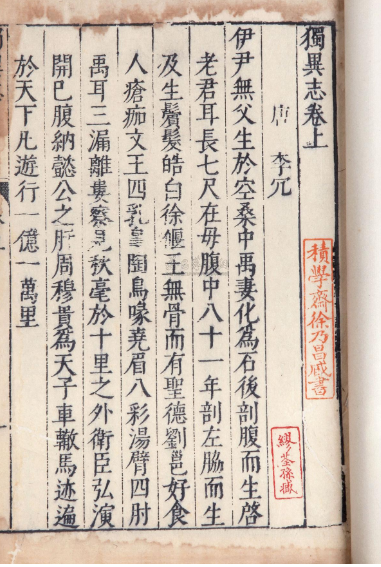 獨異志卷上
唐 李冗
伊尹無父生於空桑中禹妻化為石後剖腹而生啓
老君耳長七尺在母腹中八十一年剖左脇而生
及生鬚髮皓白徐偃王無骨而有聖德劉邕好食
人瘡痂文王四乳皐陶鳥喙堯眉八彩湯臂四肘
禹耳三漏離婁察見秋毫於十里之外衛臣弘演
開已腹納懿公之肝周穆貴為天子車轍馬迹遍
於天下凡遊行一億一萬里
積學齋徐乃昌藏書
繆荃孫藏